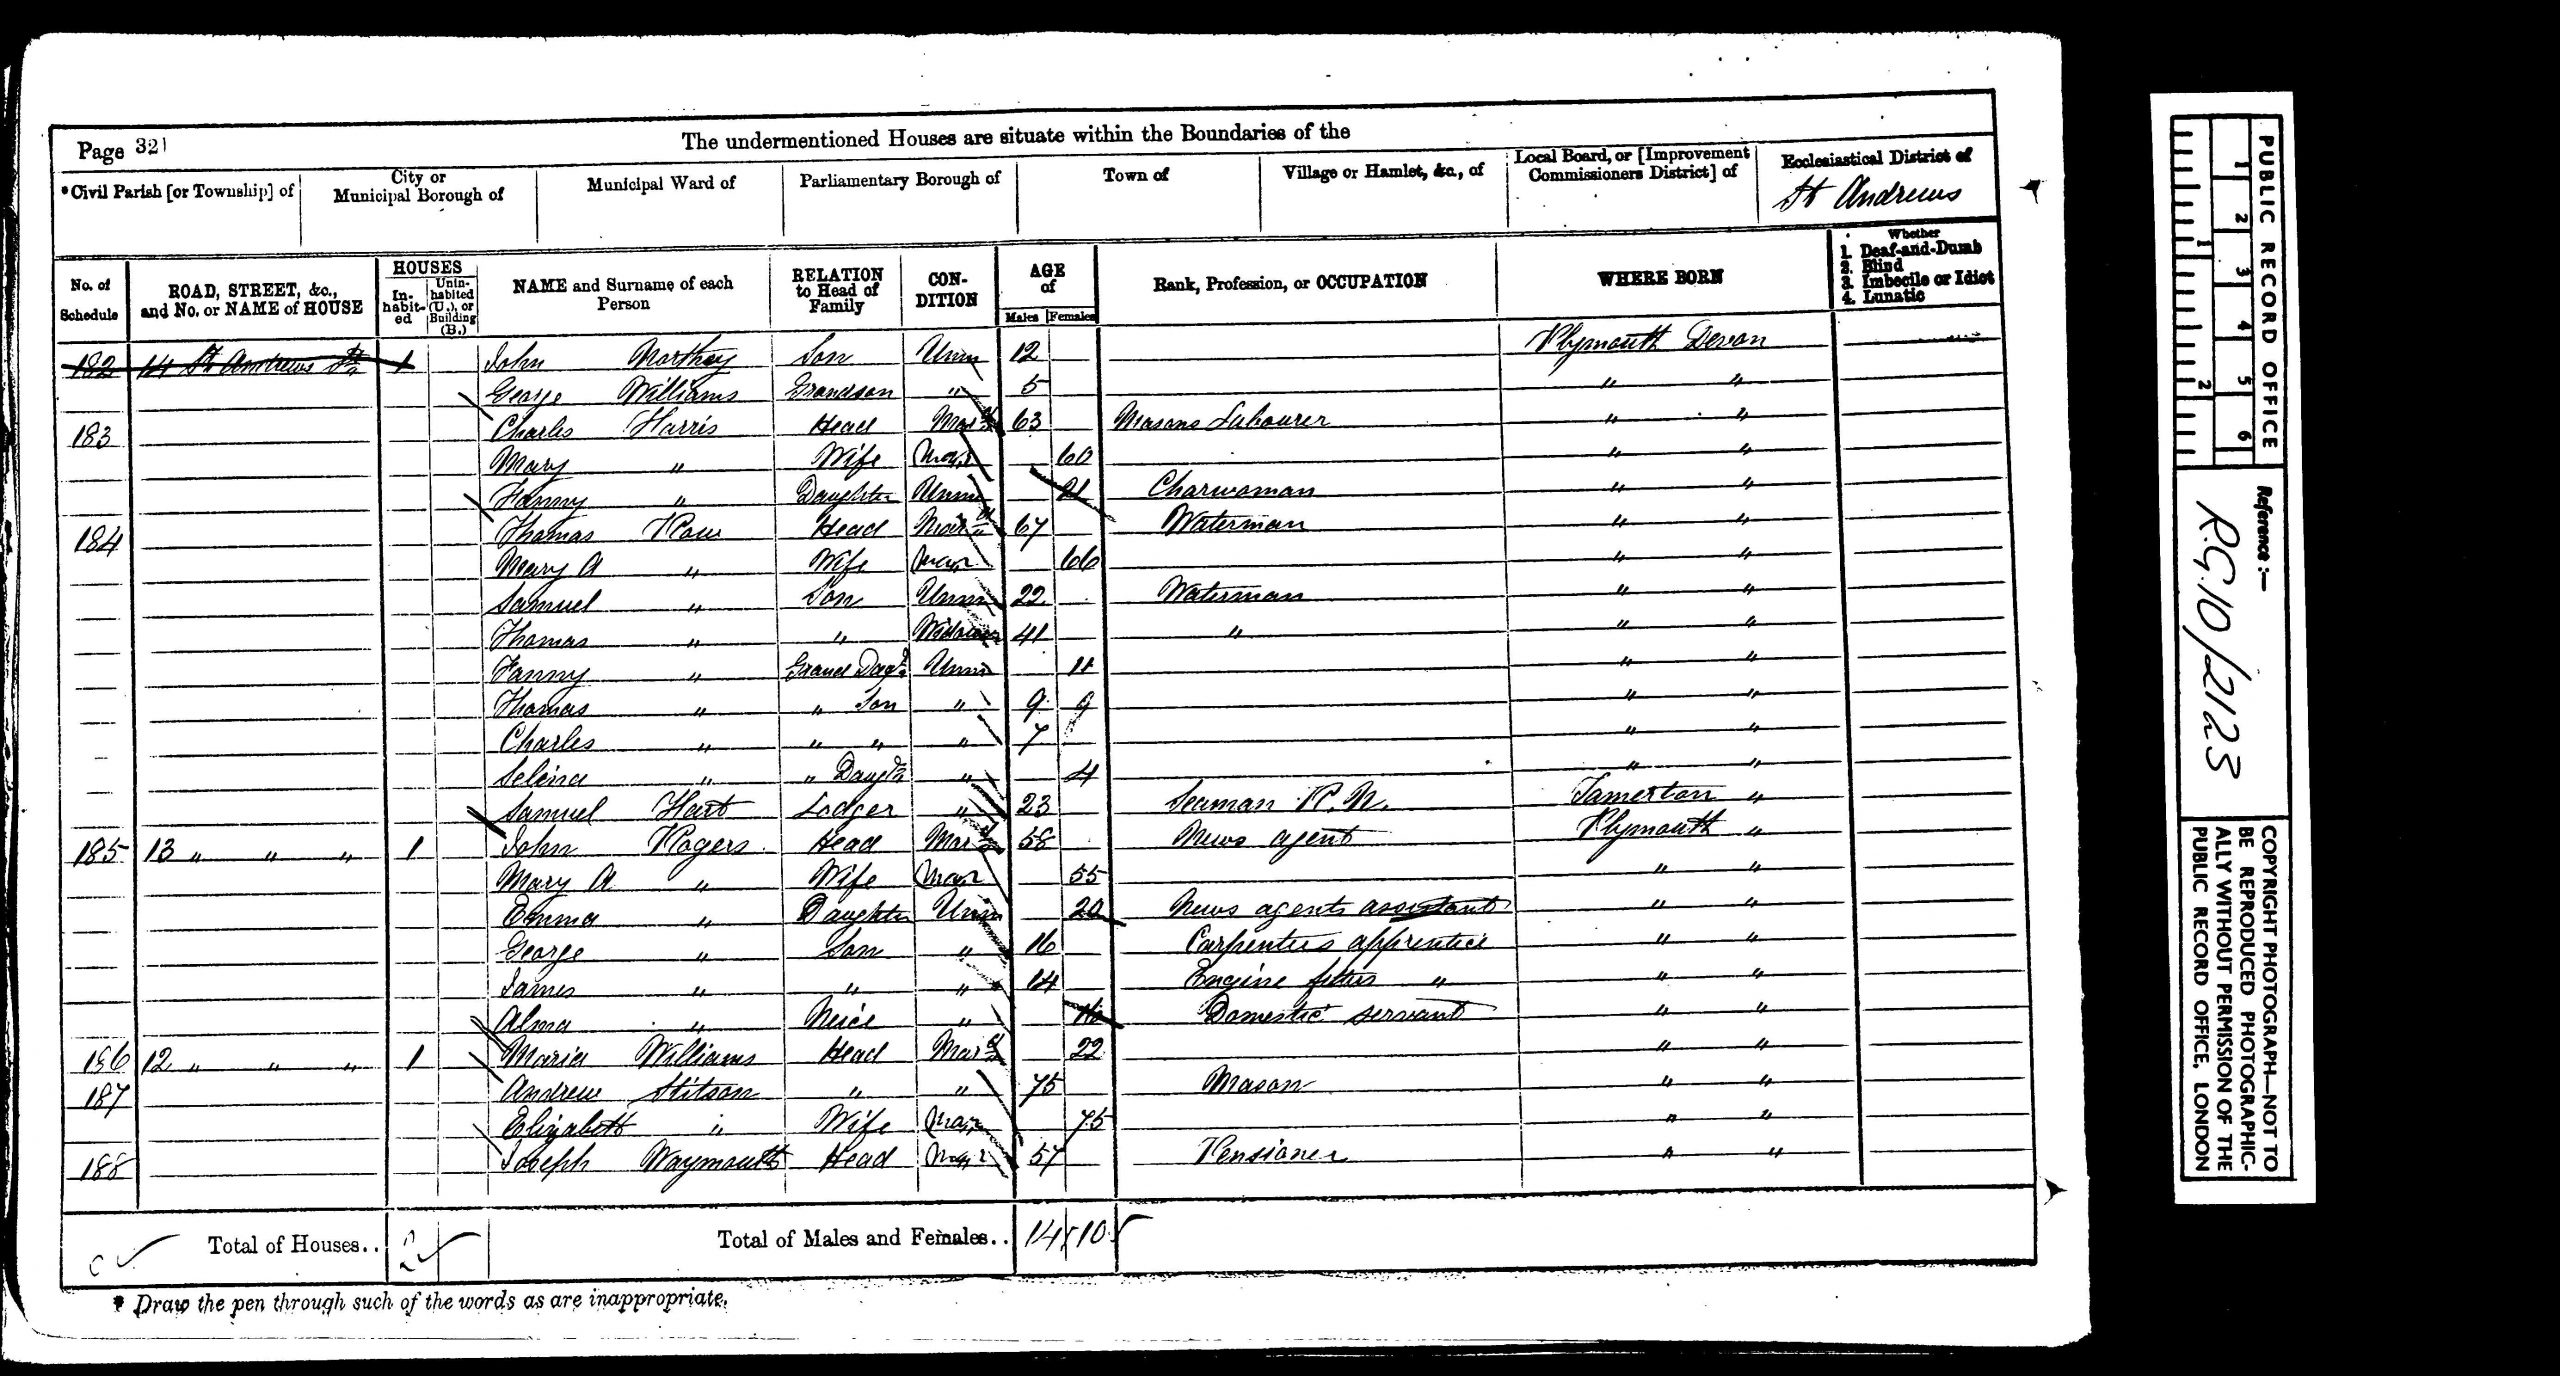 Page 32
The undermentioned Houses are situate within the Boundaries of the
*Civil Parish [or Township] of
City or Municipal Borough of
Municipal Ward of
Parliamentary Borough of
Town of
Village or Hamlet, &c., of
Local Board, or [Improvement Commissioners District] of
Ecclesiastical District of
St Andrews
No. of Schedule
ROAD, STREET, &c., and No. or NAME of HOUSE
HOUSES
In-habit-ed
Unin-habited (U.), or Building (B.)
NAME and Surname of each Person
RELATION to Head of Family
CON-DITION
AGE of
Males Females
Rank, Profession, or OCCUPATION
WHERE BORN
Whether
1. Deaf-and-Dumb
2. Blind
3. Imbecile or Idiot
4. Lunatic
182 14 St Andrews St 1 John Son Unm 12 Plymouth Devon
George Williams Grandson " 5 " "
183 Charles Harris Head Mar 63 Masons Labourer " "
Mary " Wife Mar 60 " "
Fanny " Daughter Unm 21 Charwoman " "
184 Thomas Row Head Mar 67 Waterman " "
Mary A " Wife Mar 66 " "
Samuel " Son Unm 22 Waterman " "
Thomas " " Widower 41 " " "
Fanny " Grand Dagr Unm 11 " "
Thomas " " Son " 9 9 " "
Charles " " " " 7 " "
Selina " " Daugtr " 4 " "
Samuel Hart Lodger " 23 Seaman R.N. Tamerton "
185 13 " " " 1 John Rogers Head Mard 58 News agent Plymouth "
Mary A " Wife Mar 55 " "
Emma " Daughter Unm 20 News agents assistant " "
George " Son " 16 Carpenters apprentice " "
James " " " 14 Engine fitters " " "
Alma " Neice " 16 Domestic servant " "
186 12 " " " 1 Maria Williams Head Mard 22 " "
187 Andrew Stitson " " 75 Mason " "
Elizabeth " Wife Mar 75 " "
188 Joseph Waymouth Head Mar 57 Pensioner " "
Total of Houses.. 2
Total of Males and Females.. 14 10
* Draw the pen through such of the words as are inappropriate.
PUBLIC RECORD OFFICE
1 2 3 4 5 6
1 2
Reference :—
R.G. 10/2123
COPYRIGHT PHOTOGRAPH—NOT TO
BE REPRODUCED PHOTOGRAPHIC-
ALLY WITHOUT PERMISSION OF THE
PUBLIC RECORD OFFICE, LONDON